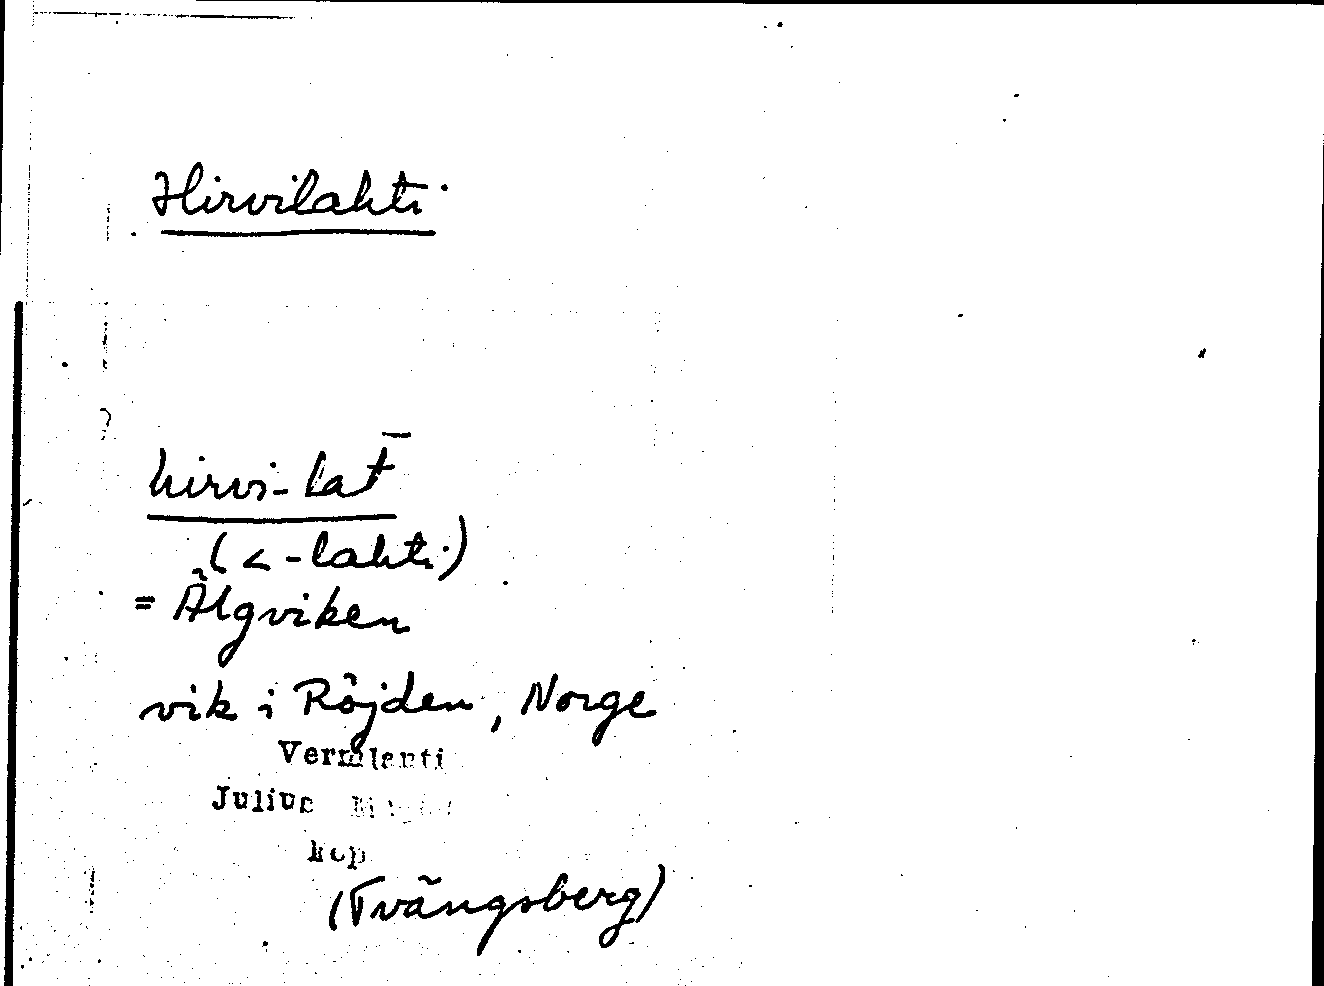 Hirvilahti
hirvi-lat̄
(< -lahti)
= Älgviken
vik i Röjden, Norge
Vermlanti
Julius
kop
(Tvängsberg)